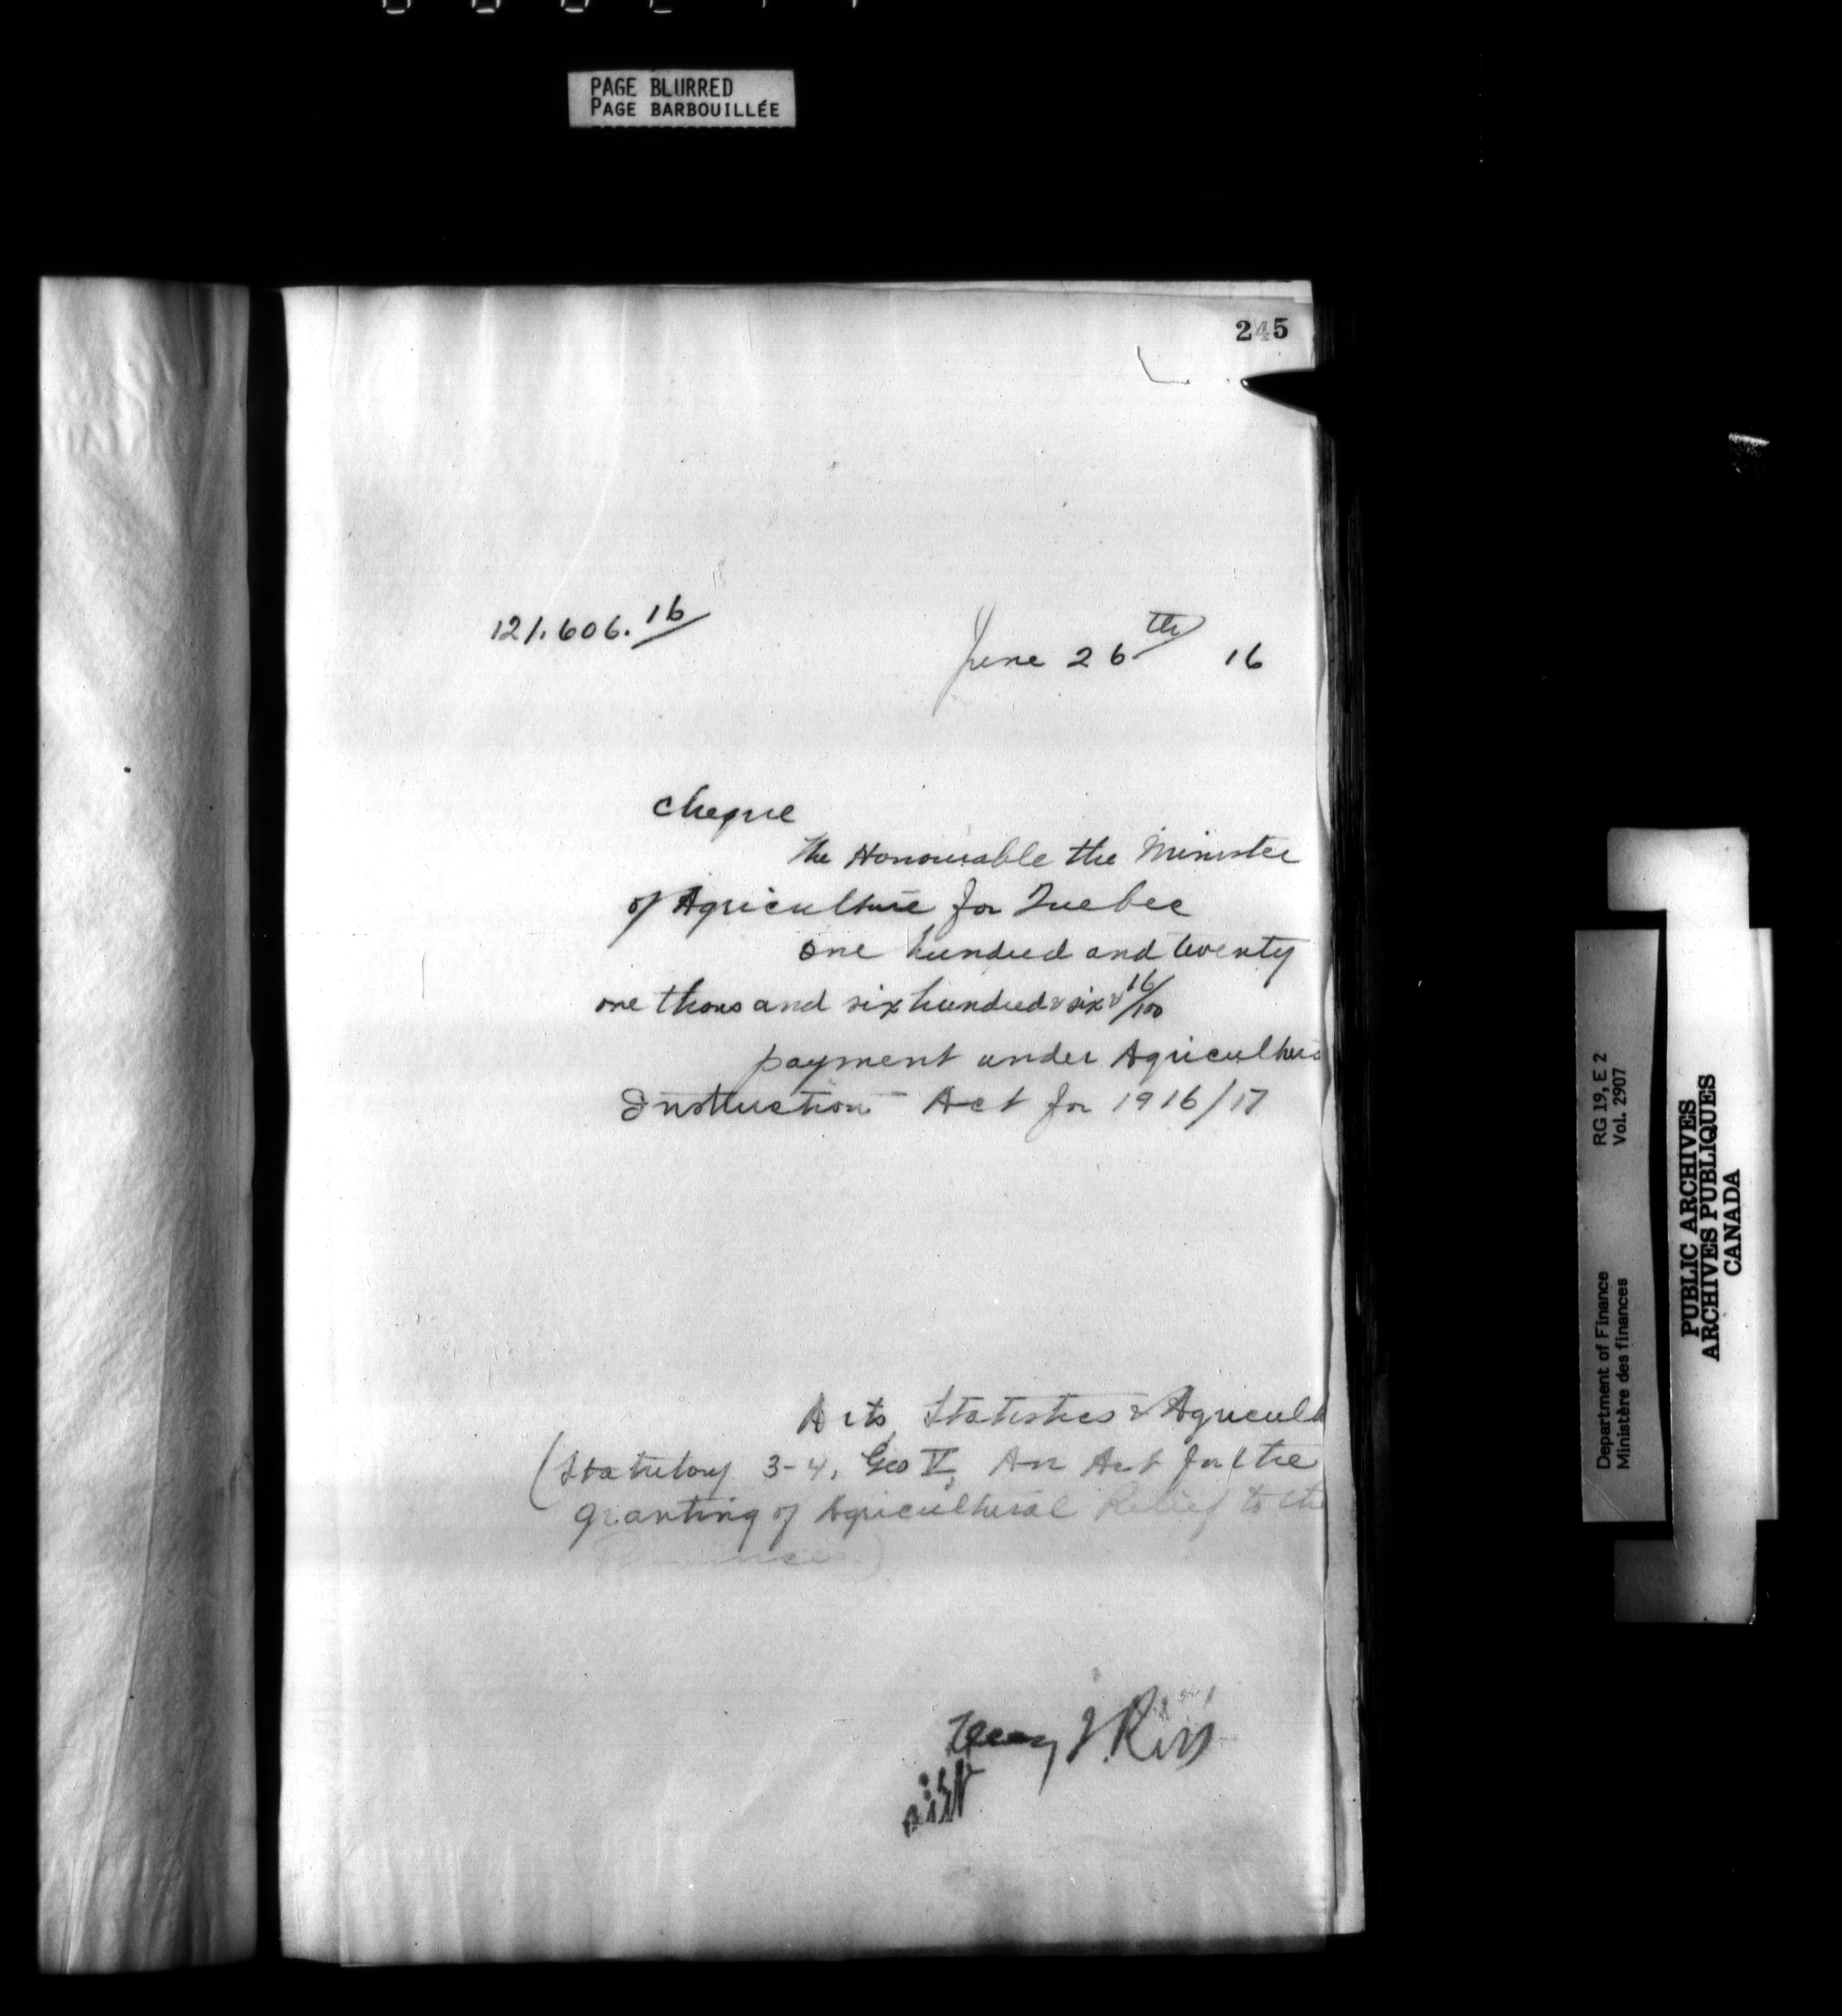 PAGE BLURRED
PAGE BARBOUILLÉE
245
121.606.16
June 26th 16
cheque
The Honourable the Minister
of Agriculture for Quebec
one hundred and twenty
one thousand six hundred & six & 16/100
payment under Agricultura
Instruction Act for 1916/17
Arts, Statistics & Agricult
(Statutory 3-4, Geo V, An Act for the
granting of Agricultural Relief to the
Provinces)
Henry T. Ross
asst
RG 19, E 2
Vol. 2907
Department of Finance
Ministère des finances
PUBLIC ARCHIVES
ARCHIVES PUBLIQUES
CANADA